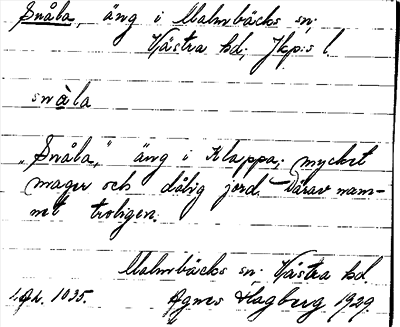 Snåla, äng i Malmbäcks sn;
Västra hd; Jkp:s l.
snàla
„Snåla,” äng i Klappa; mycket
mager och dålig jord. Därav nam-
net troligen.
Malmbäcks sn. Västra hd.
1035. Agnes Hagberg 1929.